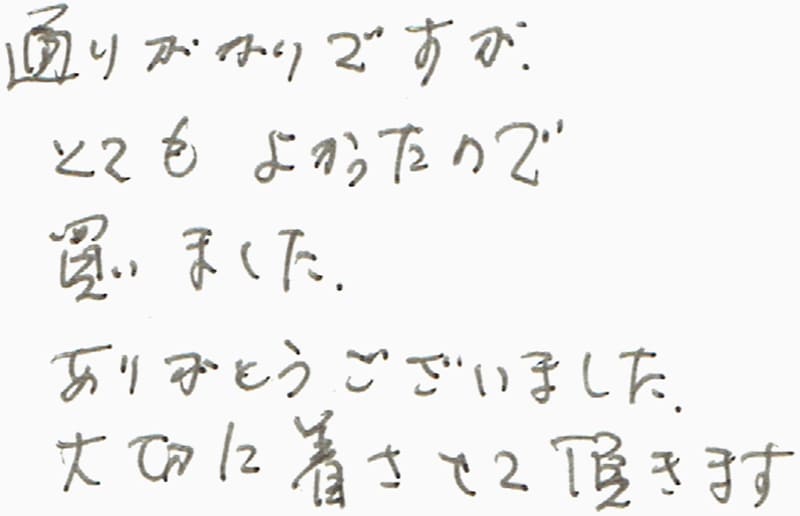 通りがかりですが.
とてもよかったので
買いました.
ありがとうございました.
大切に着させて頂きます